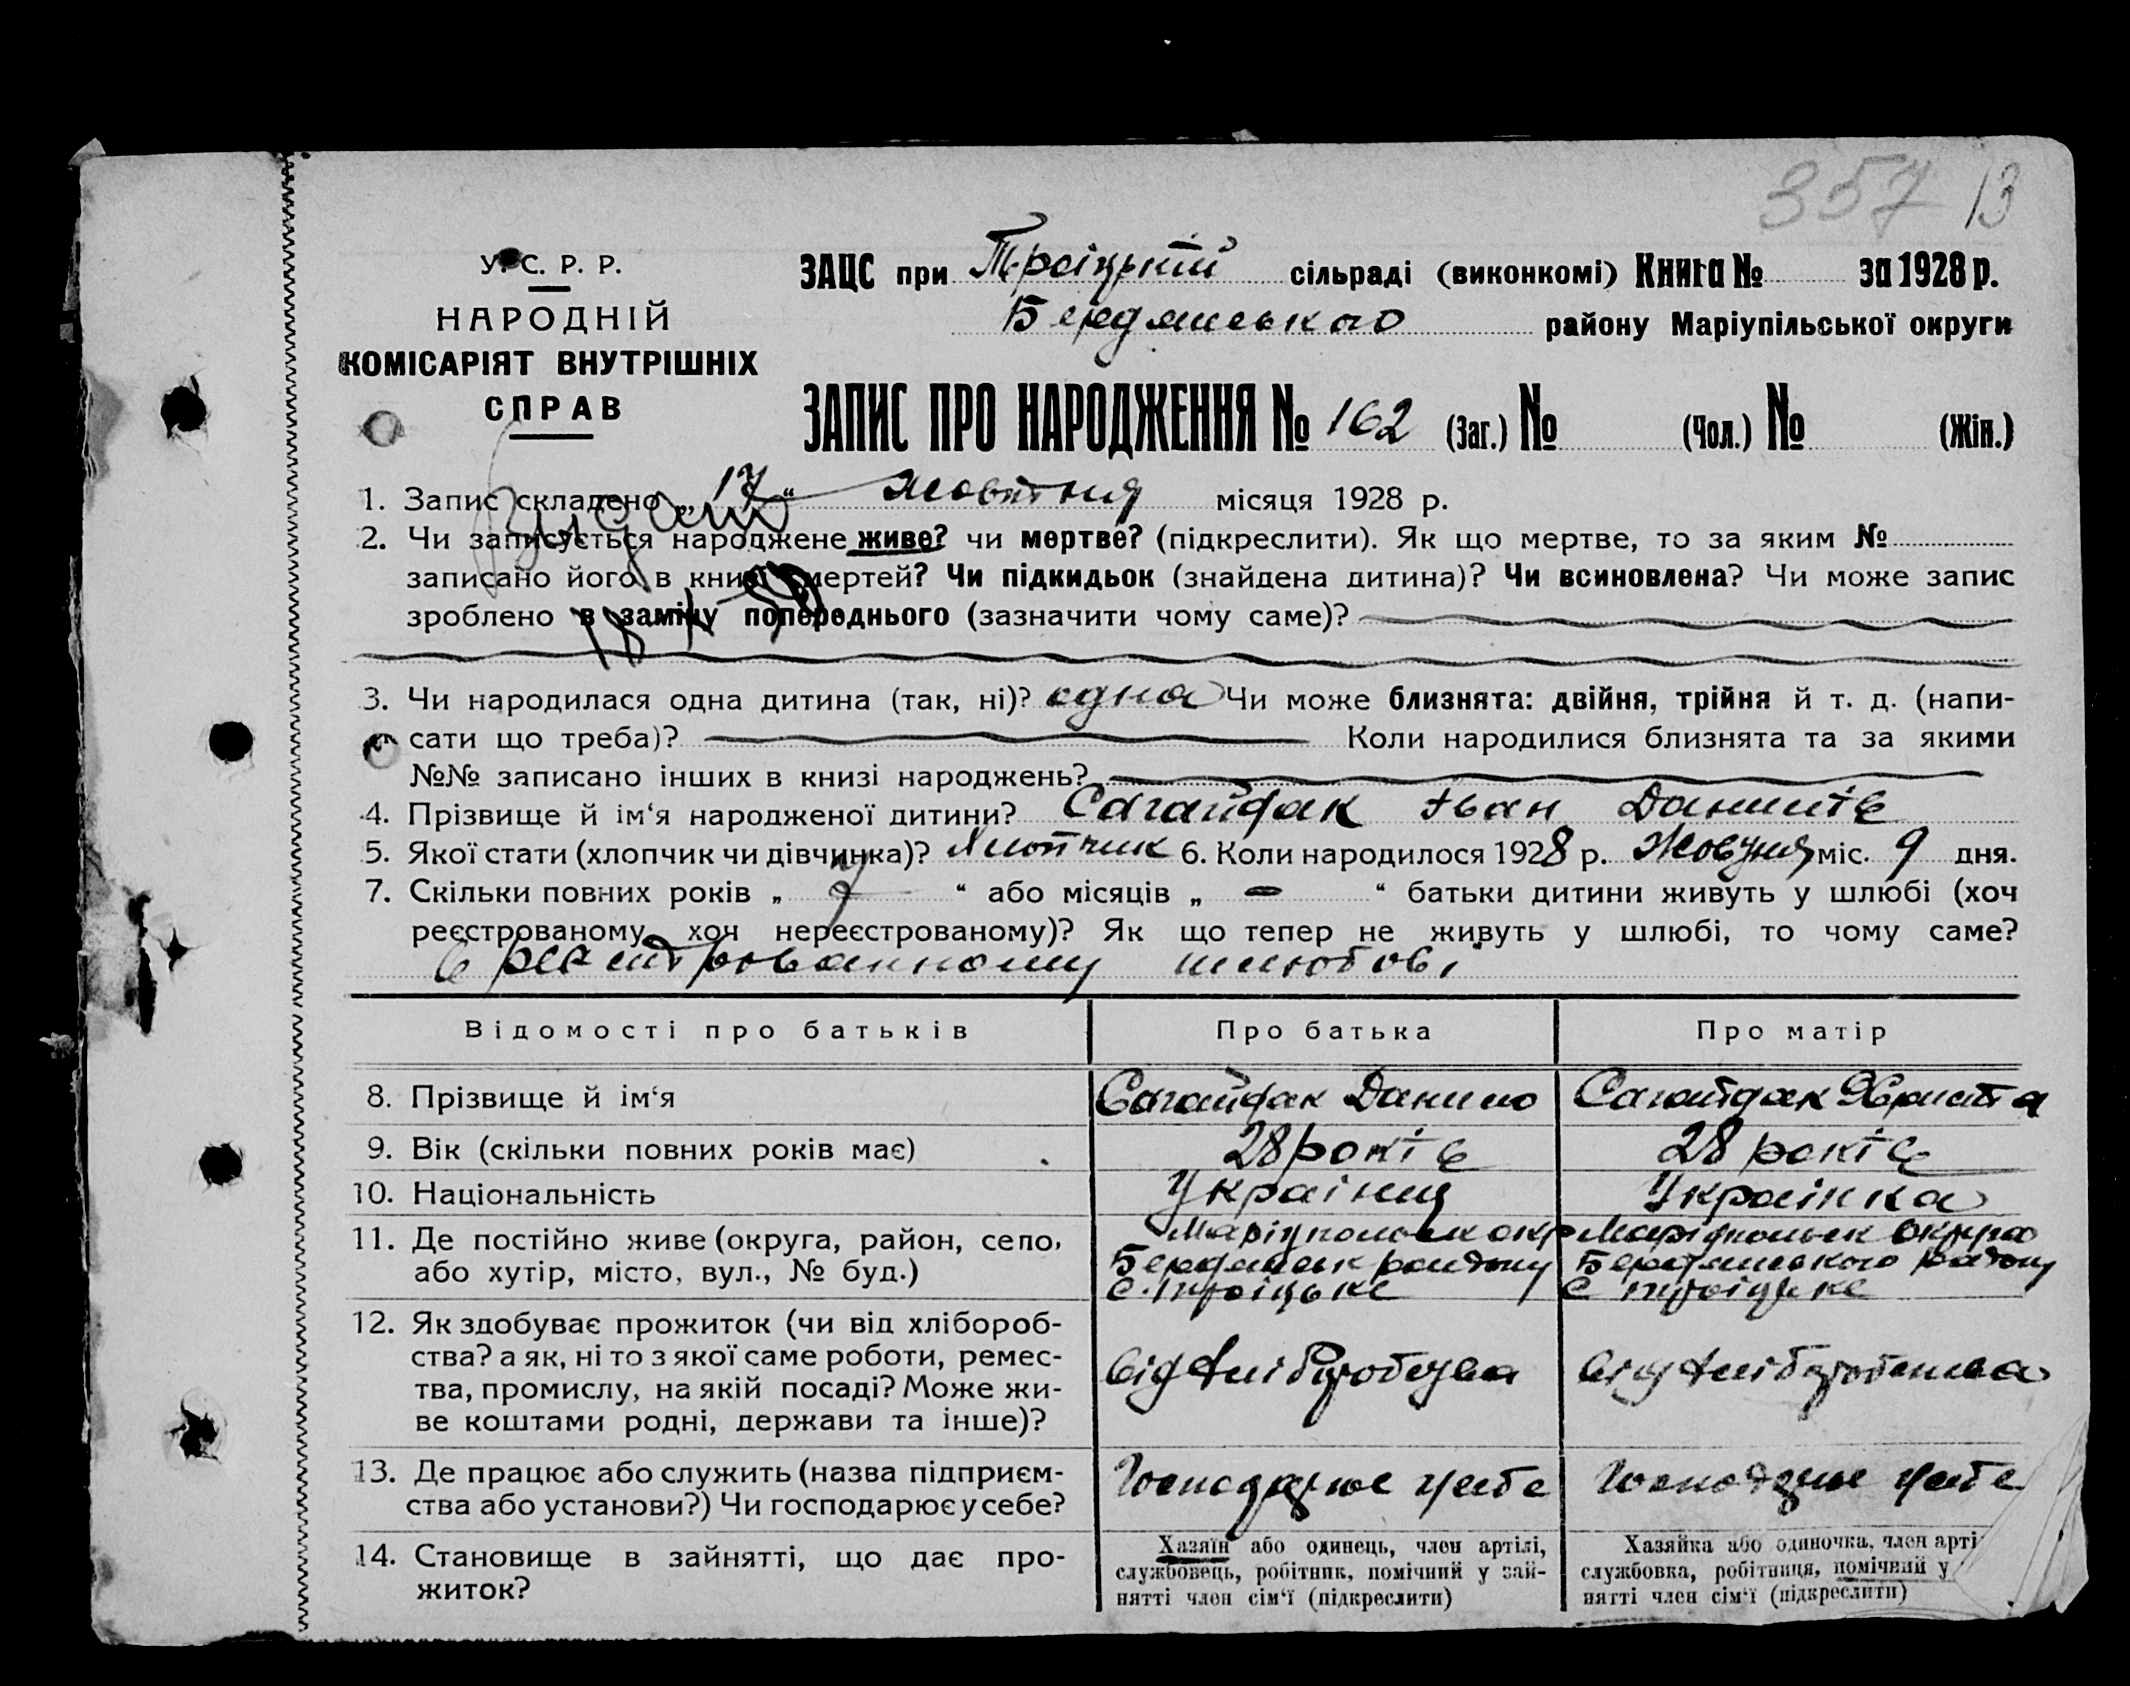 357 13
У. С. Р. Р.
НАРОДНІЙ
КОМІСАРІЯТ ВНУТРІШНІХ
СПРАВ
ЗАЦС при Троіцькій сільраді (виконкомі) Книга № за 1928 р.
Бердянського району Маріупільської округи
ЗАПИС ПРО НАРОДЖЕННЯ № 162 (Заг.) № (Чол.) № (Жін.)
1. Запис складено „ 17 “ жовтня місяця 1928 р.
2. Чи записується народжене живе? чи мертве? (підкреслити). Як що мертве, то за яким №
записано його в книзі смертей? Чи підкидьок (знайдена дитина)? Чи всиновлена? Чи може запис
зроблено в заміну попереднього (зазначити чому саме)?
3. Чи народилася одна дитина (так, ні)? одна Чи може близнята: двійня, трійня й т. д. (напи-
сати що треба)? Коли народилися близнята та за якими
№№ записано інших в книзі народжень?
4. Прізвище й ім‘я народженої дитини? Сагайдак Іван Данилів
5. Якої стати (хлопчик чи дівчинка)? Хлопчик 6. Коли народилося 1928 р. Жовтня міс. 9 дня.
7. Скільки повних років „ 7 “ або місяців „ — “ батьки дитини живуть у шлюбі (хоч
реєстрованому, хоч нереєстрованому)? Як що тепер не живуть у шлюбі, то чому саме?
шлюбові
Відомості про батьків Про батька Про матір
8. Прізвище й ім‘я Сагайдак Данило Сагайдак Христя
9. Вік (скільки повних років має) 28 років 28 років
10. Національність Украінец Украінка
11. Де постійно живе (округа, район, село,
або хутір, місто, вул., № буд.)
Маріупольск окр
Бердянськ району
с. Троіцьке
Маріупольск округа
Бердянського району
с Троіцьке
12. Як здобуває прожиток (чи від хлібороб-
ства? а як, ні то з якої саме роботи, ремес-
тва, промислу, на якій посаді? Може жи-
ве коштами родні, держави та інше)?
від хліборобства
від хліборобства
13. Де працює або служить (назва підприєм-
ства або установи?) Чи господарює у себе?
Господарює у себе
Господарює у себе
14. Становище в зайнятті, що дає про-
житок?
Хазяїн або одинець, член артілі,
службовець, робітник, помічний у зай-
нятті член сім‘ї (підкреслити)
Хазяйка або одиночка, член арті
службовка, робітниця, помічний у
нятті член сім‘ї (підкреслити)